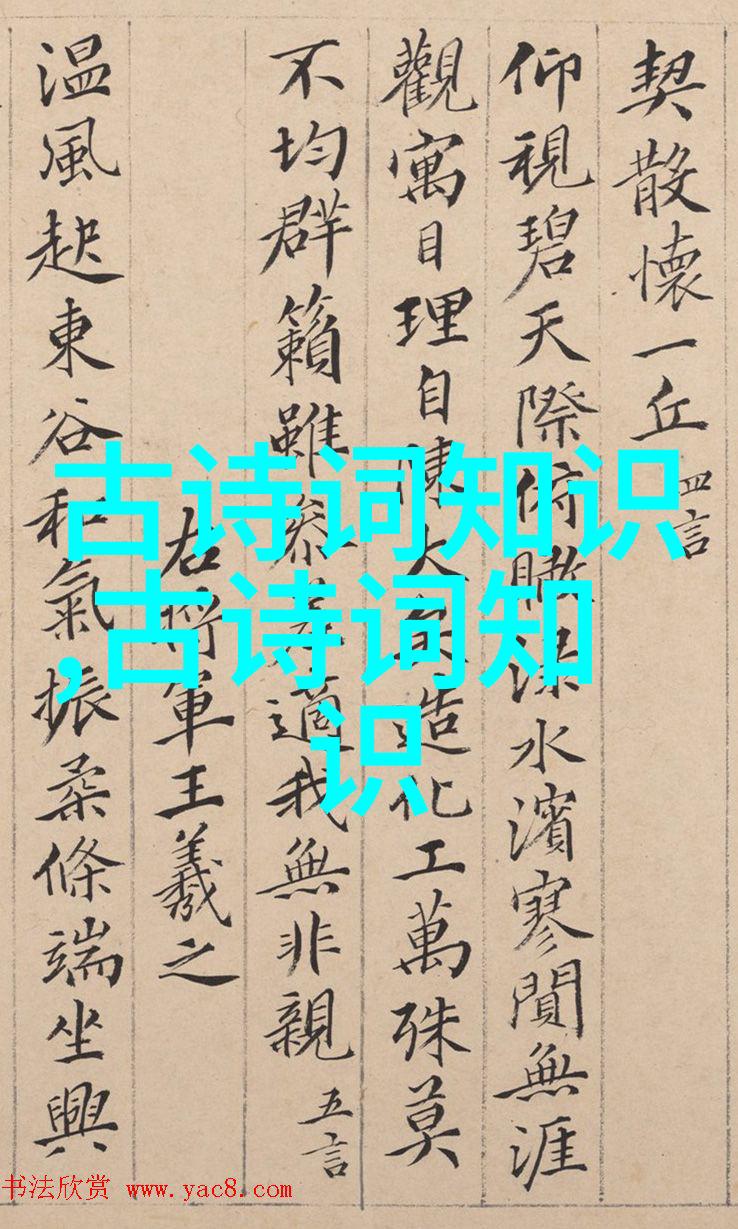 契散懷一丘 四言
仰視碧天際俯瞰淥水濱寥閴無涯
觀寓目理自陳大矣造化工萬殊莫
不均群籟雖參差適我無非親 五言
右將軍王羲之
温風起東谷和氣振柔條端坐興
古诗词知识
,古诗词知
识
书法欣赏 www.yac8.com